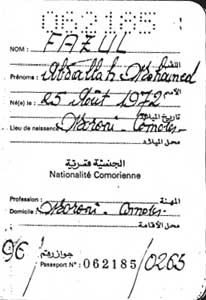 062185
NOM : FAZUL اللقب
Prénoms : Abdallah Mohamed الأسم
Né(e) le : 25 Août 1972 تاريخ الميلاد
Lieu de naissance Moroni - Comores
محل الميلاد
الجنسية قمرية
Nationalité Comorienne
Profession : المهنة
Domicile : Moroni - Comores
محل الأقامة
96/ جواز رقم
Passeport N° : 062185 /0265